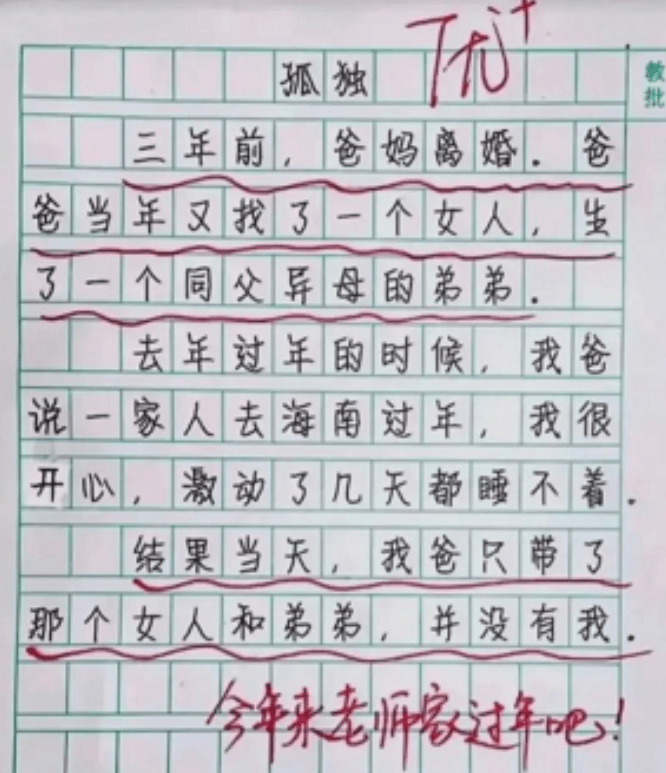 优+
孤独
教
批
三年前，爸妈离婚。爸
爸当年又找了一个女人，生
了一个同父异母的弟弟。
去年过年的时候，我爸
说一家人去海南过年，我很
开心，激动了几天都睡不着。
结果当天，我爸只带了
那个女人和弟弟，并没有我。
今年来老师家过年吧！